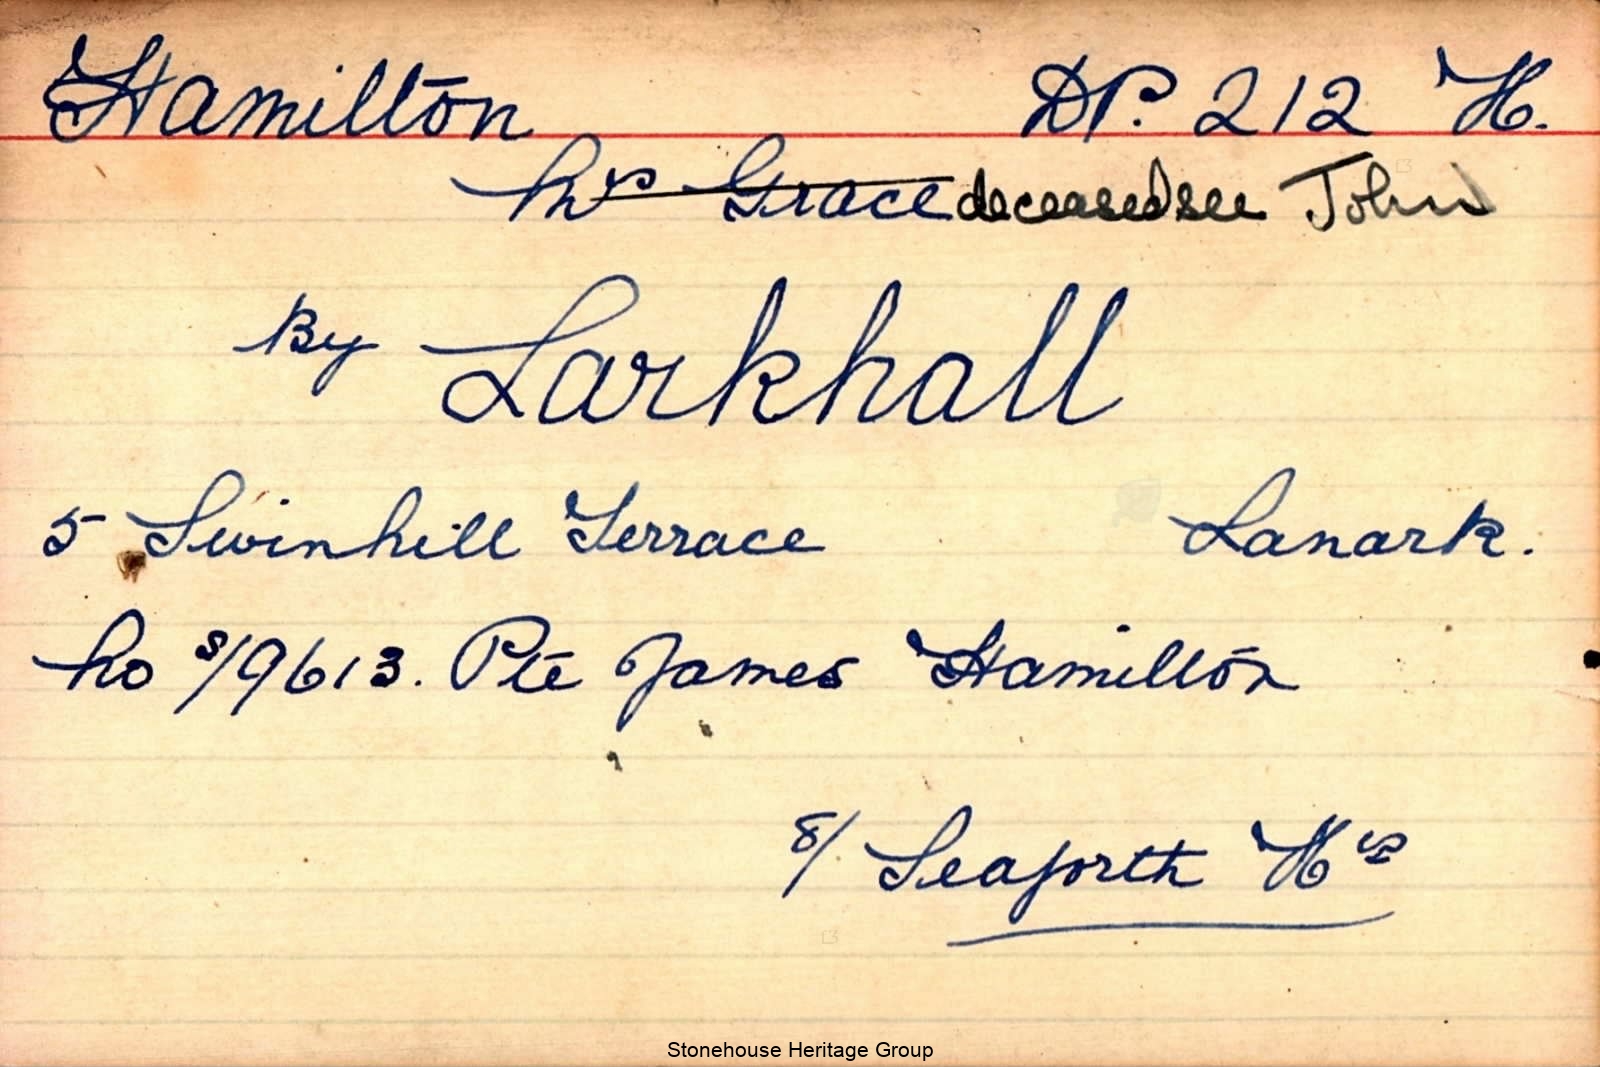 Hamilton DP. 212 H.
Mrs Grace deceased see John
By Larkhall
5 Swinhill Terrace Lanark.
No S/9613. Pte James Hamilton
8/ Seaforth Hrs
Stonehouse Heritage Group